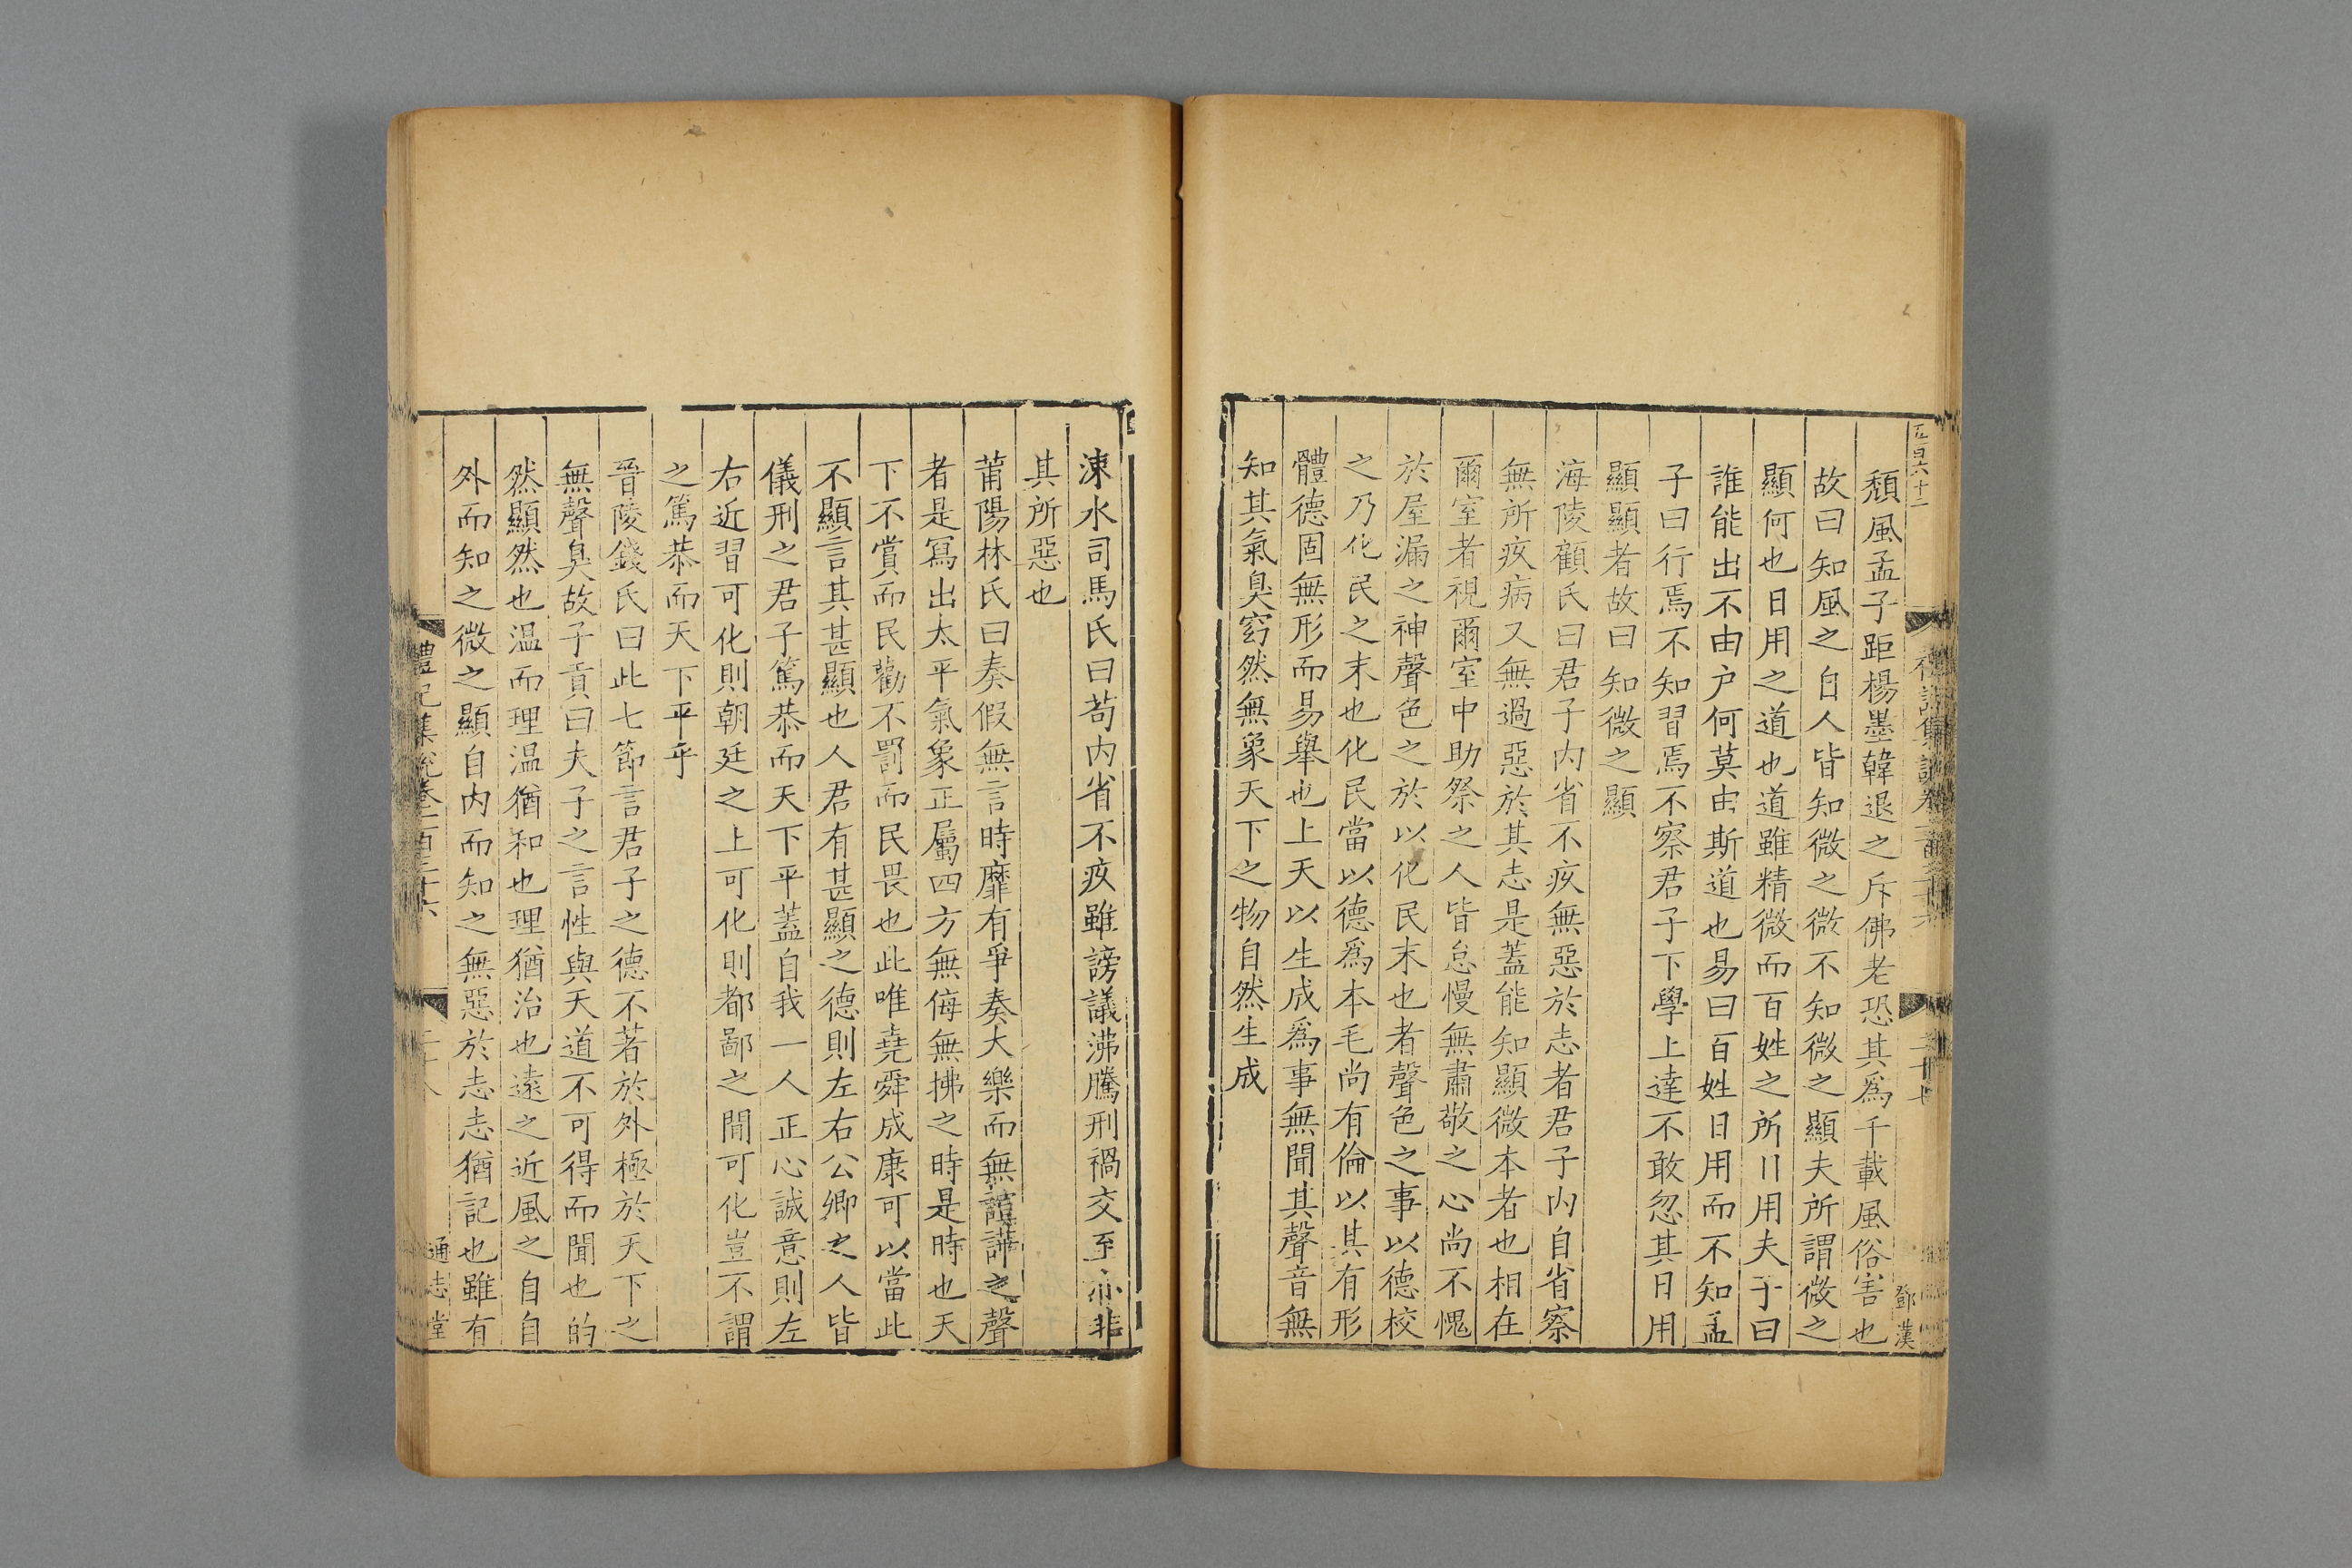 五百六十二
鄧漢
頽風孟子距楊墨韓退之斥佛老恐其爲千載風俗害也
故曰知風之自人皆知微之微不知微之顯夫所謂微之
顯何也日用之道也道雖精微而百姓之所日用夫子曰
誰能出不由户何莫由斯道也易曰百姓日用而不知孟
子曰行焉不知習焉不察君子下學上達不敢忽其日用
顯顯者故曰知微之顯
海陵顧氏曰君子内省不疚無惡於志者君子内自省察
無所疚病又無過惡於其志是蓋能知顯微本者也相在
爾室者視爾室中助祭之人皆怠慢無肅敬之心尚不愧
於屋漏之神聲色之於以化民末也者聲色之事以德校
之乃化民之末也化民當以德爲本毛尚有倫以其有形
體德固無形而易舉也上天以生成爲事無聞其聲音無
知其氣臭窈然無象天下之物自然生成
涑水司馬氏曰苟内省不疚雖謗議沸騰刑禍交至亦非
其所惡也
莆陽林氏曰奏假無言時靡有爭奏大樂而無諠譁之聲
者是冩出太平氣象正屬四方無侮無拂之時是時也天
下不賞而民勸不罰而民畏也此唯堯舜成康可以當此
不顯言其甚顯也人君有甚顯之德則左右公卿之人皆
儀刑之君子篤恭而天下平蓋自我一人正心誠意則左
右近習可化則朝廷之上可化則都鄙之間可化豈不謂
之篤恭而天下平乎
晉陵錢氏曰此七節言君子之德不著於外極於天下之
無聲臭故子貢曰夫子之言性與天道不可得而聞也的
然顯然也温而理温猶和也理猶治也遠之近風之自自
外而知之微之顯自内而知之無惡於志志猶記也雖有
禮記集說卷一百三十六
通志堂